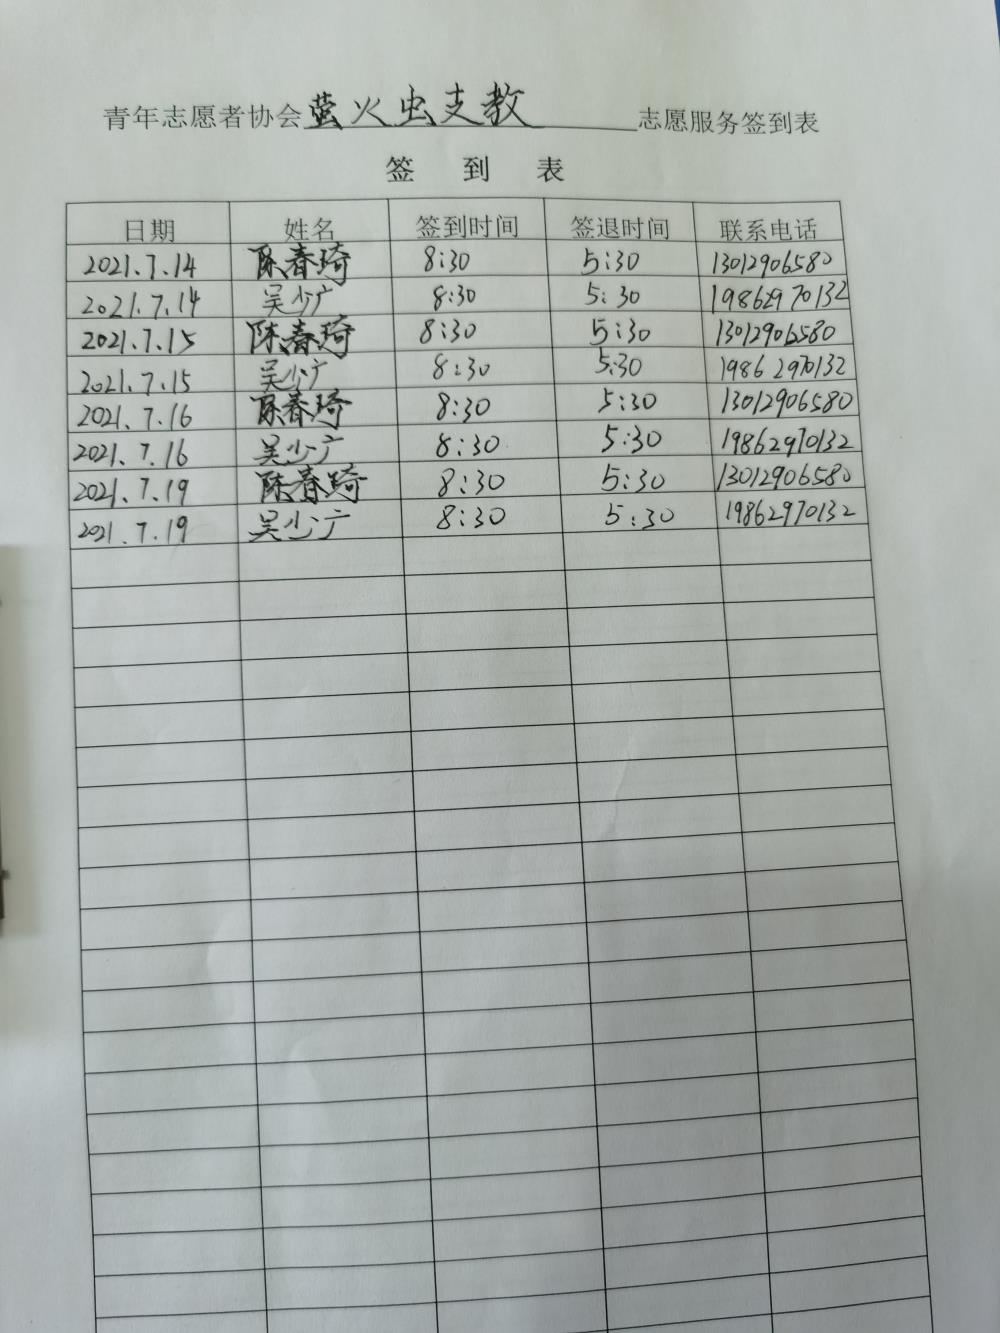 青年志愿者协会萤火虫支教志愿服务签到表
签 到 表
日期 姓名 签到时间 签退时间 联系电话
2021.7.14 陈春琦 8:30 5:30 13012906580
2021.7.14 吴少广 8:30 5:30 19862970132
2021.7.15 陈春琦 8:30 5:30 13012906580
2021.7.15 吴少广 8:30 5:30 19862970132
2021.7.16 陈春琦 8:30 5:30 13012906580
2021.7.16 吴少广 8:30 5:30 19862970132
2021.7.19 陈春琦 8:30 5:30 13012906580
2021.7.19 吴少广 8:30 5:30 19862970132